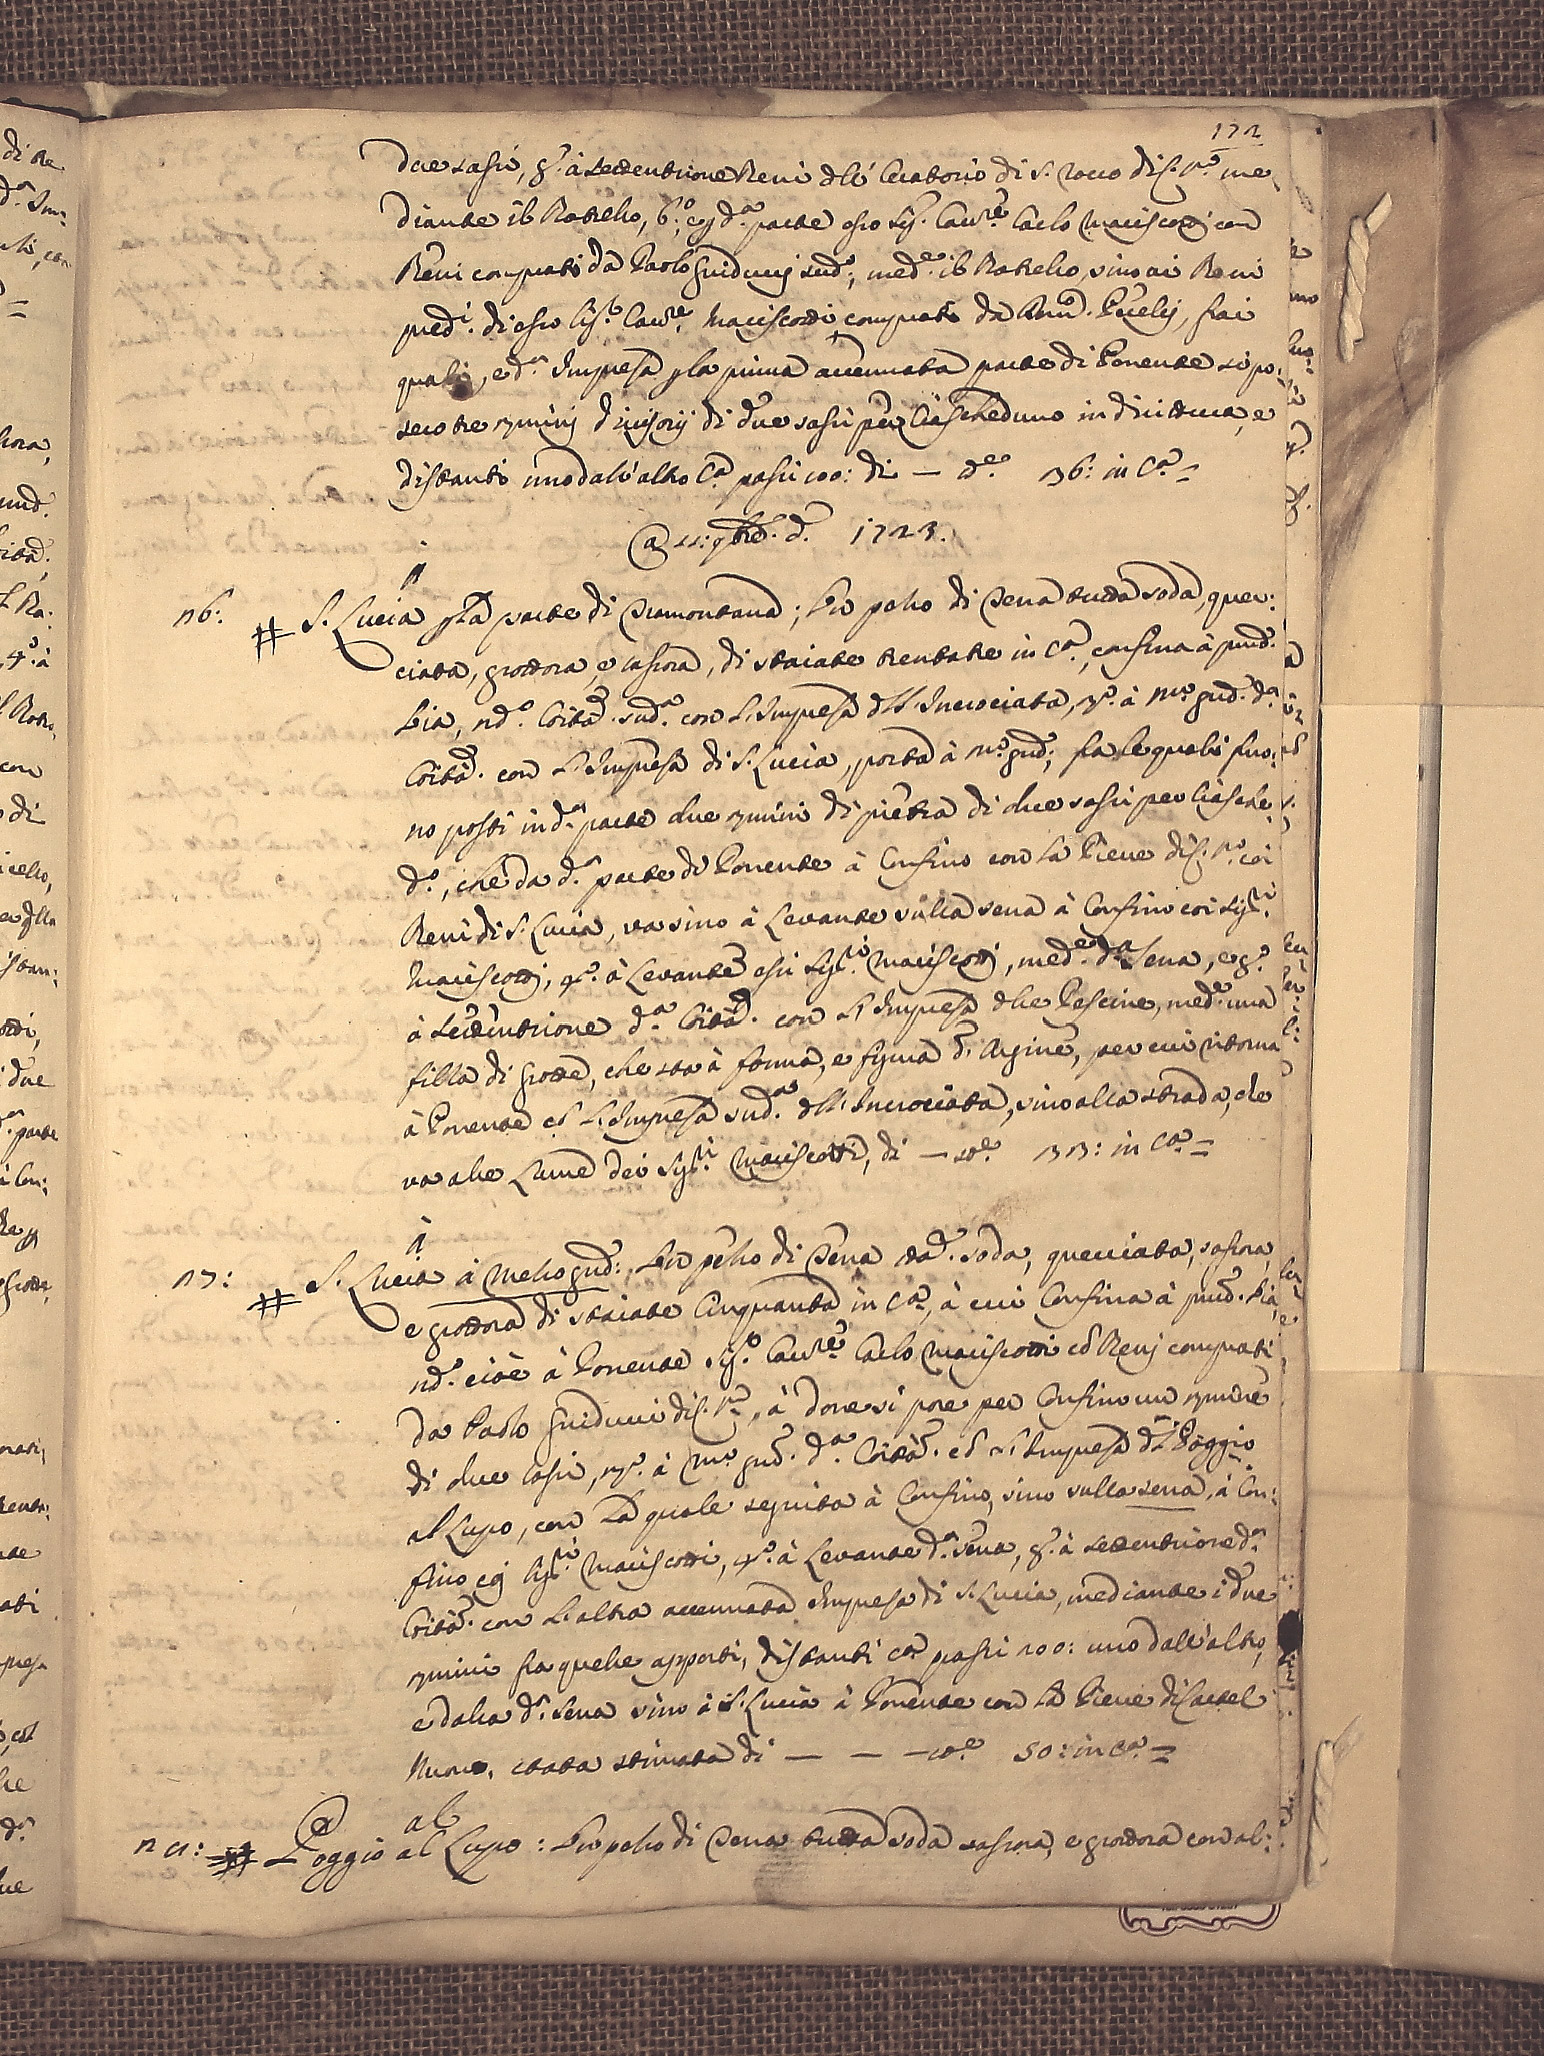 172
due sassi, 5.º à settentrione Beni dell'Oratorio di S. Rocco di C. N.º me
diante il Botrello, 6.º e d.ª parte esso Sig.r Cav.re Carlo Mariscotti con
Beni comprati da Paolo Guiducci sud.º, med.e il Botrello, sino ai Beni
pred.i di esso Sig.r Cav.re Mariscotti comprati da, frai
quali, e d.ª Impresa p la prima accennata parte di Ponente si po:
sero tre termini divisorij di due sassi per ciascheduno in dirittura, e
distanti uno dall'altro C.ª passi 100: di — st.e 36: in C.ª =
@ 11: 9bre. d.º 1723.
n 6: # S. Lucia p La parte di Tramontana; Un pezzo di Terra tutta soda, quer:
ciata, grottosa, e sassosa, di staiate trentatre in C.ª, confina à pmd.
Via, 2d.º Coità. sud.ª con L'Impresa dell'Incrociata, 3.º à M.º giud. d.ª
Coità. con L'Impresa di S. Lucia, posta à M.º giud.; fra le quali furo:
no posti in d.ª parte due termini di pietra di due sassi per ciasche
d.º, che da d.ª parte di Ponente à Confino con La Pieve di C. N.º coi
Beni di S. Lucia, va sino à Levante sulla serra à Confino coi Sig.ri
Mariscotti, 4.º à Levante essi Sig.ri Mariscotti, med.e d.ª Serra, e 5.º
à Settentrione d.ª Coità. con L'Impresa delle Pescine, med.e una
filla di grotte, che sta à forma, e figura di Argine, per cui ritorna
à Ponente cò L'Impresa sud.ª dell'Incrociata, sino alla strada, che
va alle Lame dei Sig.ri Mariscotti, di — st.e 33: in C.ª =
n 7: # S. Lucia à Mezzo giud: Un pezzo di Terra tta. soda, querciata, sassosa,
e grottosa di staiate Cinquanta in C.ª, à cui Confina à pmd. Via,
2d.º cioè à Ponente Sig.r Cav.re Carlo Mariscotti cò Beni comprati
da Paolo Guiducci di C. N.º, à dove si pose per Confino un termine
di due sassi, 3.º à M.º giud. d.ª Coità. cò L'Impresa del Poggio
al Lupo, con La quale seguita à Confino, sino sulla serra, à Con:
fino coi Sig.ri Mariscotti, 4.º à Levante d.ª Serra, 5.º à settentrione d.ª
Coità. con L'altra accennata Impresa di S. Lucia, mediante i due
termini fra quelle apposti, distanti C.ª passi 200: uno dall'altro,
e dalla d.ª Serra sino à S. Lucia à Ponente con La Pieve di Castel
Nuovo, stata stimata di — — — st.e 50: in C.ª =
al
Poggio al Lupo: Un pezzo di Terra tutta soda sassosa, e grottosa con al: